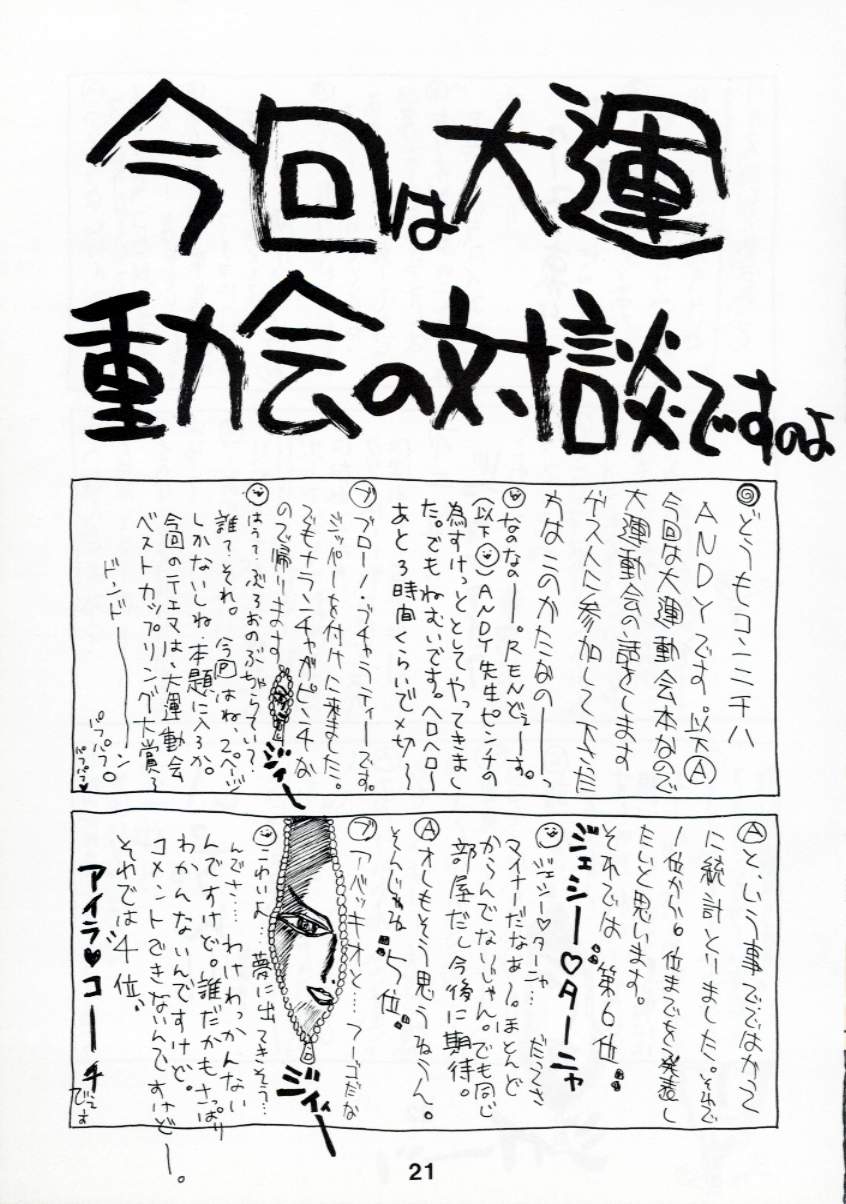 今回は大運
動会の対談ですのよ
どうもコンニチハ
ANDYです。以下Ⓐ
今回は大運動会本なので
大運動会の話をします
ゲストに参加して下さた
方はこのかたなのーーっ
なのなのー。RENどぇーす。
(以下 )ANDY先生ピンチの
為すけっととしてやってきまし
た。でもねむいです。ヘロヘロ〜
あと3時間くらいでメ切〜
ブ ブローノ・ブチャラティーです。
ジッパーを付けに来ました。
でもナランチャがピンチな
ので帰ります
ジィー
はうて、ぶろおのぶちゃらていて
誰てそれ。今回はね、2ページ
しかないしね・本題に入ろか。
今回のテエマは、大運動会
ベストカップリング大賞〜
ドンドーーン
パフパフ。
パフパフ♥
Ⓐと、いう事でではかて
に統計とりました。それで
1位から6位までを発表し
たいと思います。
それでは"第6位"
ジェシー♡ターニャ
ジェシー♡ターニャ… だってさ
マイナーだなぁー。ほとんど
からんでないじゃん。でも同じ
部屋だし今後に期待。
Ⓐオレもそう思うねうん。
そんじゃね"5位"
ブ アバッキオと…フーゴだな
ジィィー
こわいよ…夢に出てきそう…
んでさ…わけわっかんない
んですけど。誰だかもさっぱり
わかんないんですけど。
コメントできないんですけどー。
それでは"4位"
アイラ♥コーチです
21